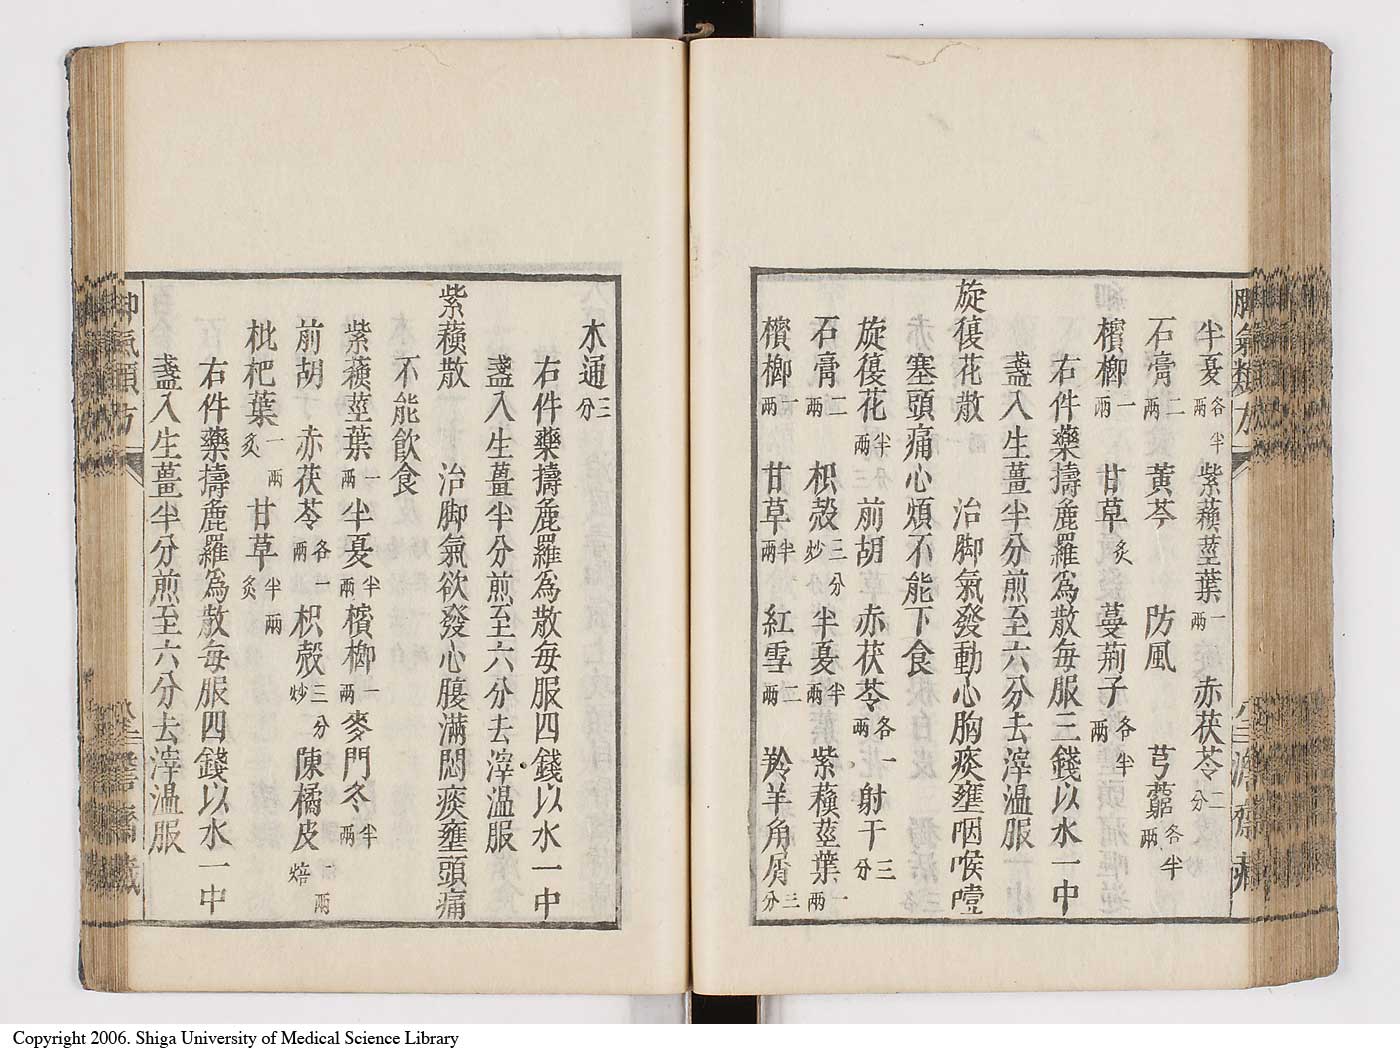 半夏各半兩 紫蘓莖葉一兩 赤茯苓二分
石膏二兩 黃芩 防風 芎藭各半兩
檳榔一兩 甘草炙 蔓荊子各半兩
右件藥擣麁羅爲散每服三錢以水一中
盞入生薑半分煎至六分去滓温服
旋復花散 治脚氣發動心胸痰壅咽喉噎
塞頭痛心煩不能下食
旋復花半兩 前胡 赤茯苓各一兩 射干三分
石膏二兩 枳殼三分炒 半夏半兩 紫蘓莖葉一兩
檳榔一兩 甘草半兩 紅雪二兩 羚羊角屑三分
木通三分
右件藥擣麁羅爲散每服四錢以水一中
盞入生薑半分煎至六分去滓温服
紫蘓散 治脚氣欲發心腹滿悶痰壅頭痛
不能飲食
紫蘓莖葉一兩 半夏半兩 檳榔一兩 麥門冬半兩
前胡 赤茯苓各一兩 枳殼三分炒 陳橘皮一兩焙
枇杷葉一兩炙 甘草半兩炙
右件藥擣麁羅爲散每服四錢以水一中
盞入生薑半分煎至六分去滓温服
脚氣類方
Copyright 2006. Shiga University of Medical Science Library